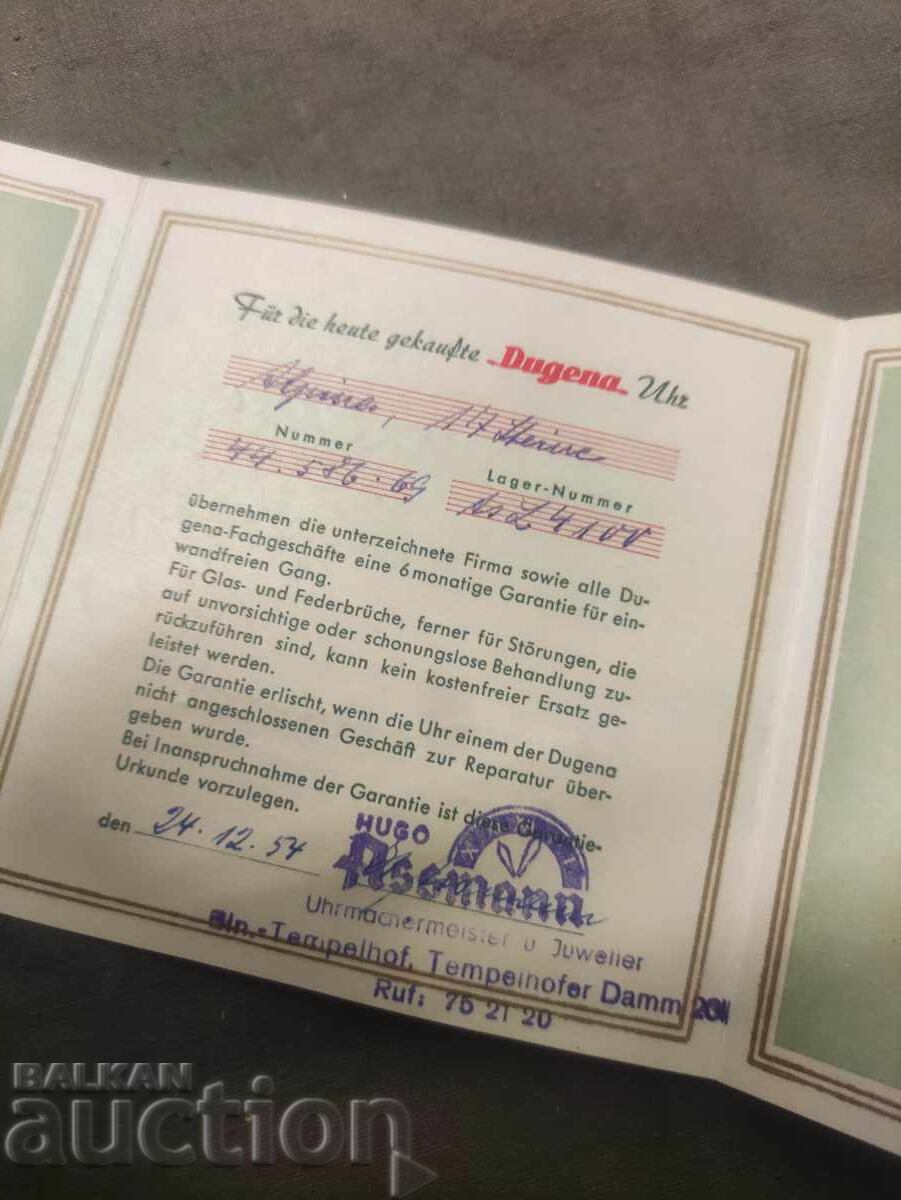 Für die heute gekaufte Dugena Uhr
Alpina, 17 Steine
Nummer
Lager-Nummer
übernehmen die unterzeichnete Firma sowie alle Du-
gena-Fachgeschäfte eine 6 monatige Garantie für ein-
wandfreien Gang.
Für Glas- und Federbrüche, ferner für Störungen, die
auf unvorsichtige oder schonungslose Behandlung zu-
rückzuführen sind, kann kein kostenfreier Ersatz ge-
leistet werden.
Die Garantie erlischt, wenn die Uhr einem der Dugena
nicht angeschlossenen Geschäft zur Reparatur über-
geben wurde.
Bei Inanspruchnahme der Garantie ist diese Garantie-
Urkunde vorzulegen.
den 24.12.54
HUGO
Asemann
Uhrmachermeister u Juwelier
Bln.-Tempelhof, Tempelhofer Damm
Ruf: 75 21 20
BALKAN
auction